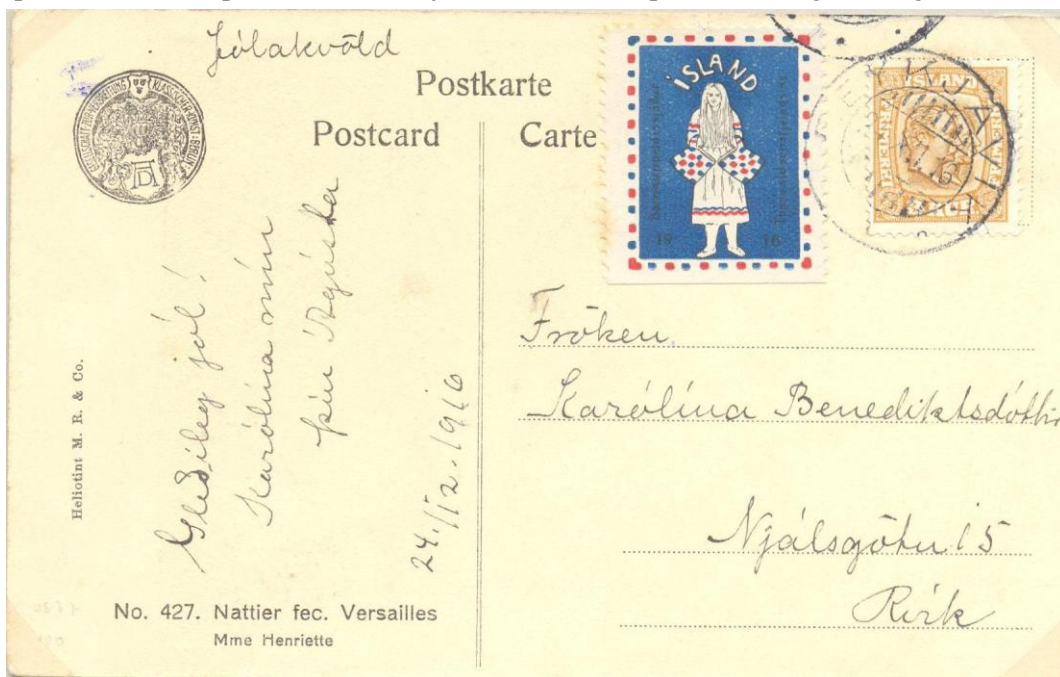 Jólakvöld
Postkarte
Postcard
Carte
ÍSLAND
19 16
ÍSLAND
Gleðileg jól!
Karólína mín
þín Ágústa
24./12. 1916
Heliotint M. R. & Co.
No. 427. Nattier fec. Versailles
Mme Henriette
Fröken
Karólína Benediktsdóttir
Njálsgötu 15
Rvík